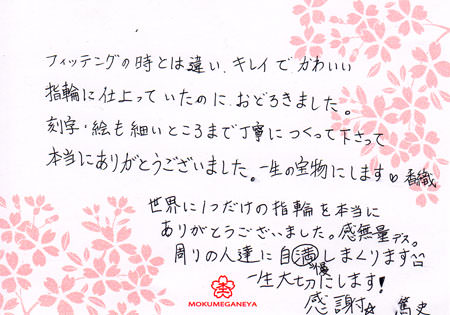 フィッテングの時とは違い、キレイでかわいい
指輪に仕上っていたのに、おどろきました。
刻字・絵も細いところまで丁寧につくって下さって
本当にありがとうございました。一生の宝物にします♡ 香織
世界に1つだけの指輪を本当に
ありがとうございました。感無量デス。
周りの人達に自満しまくります
慢
一生大切にします!
感謝☆ 篤史
MOKUMEGANEYA